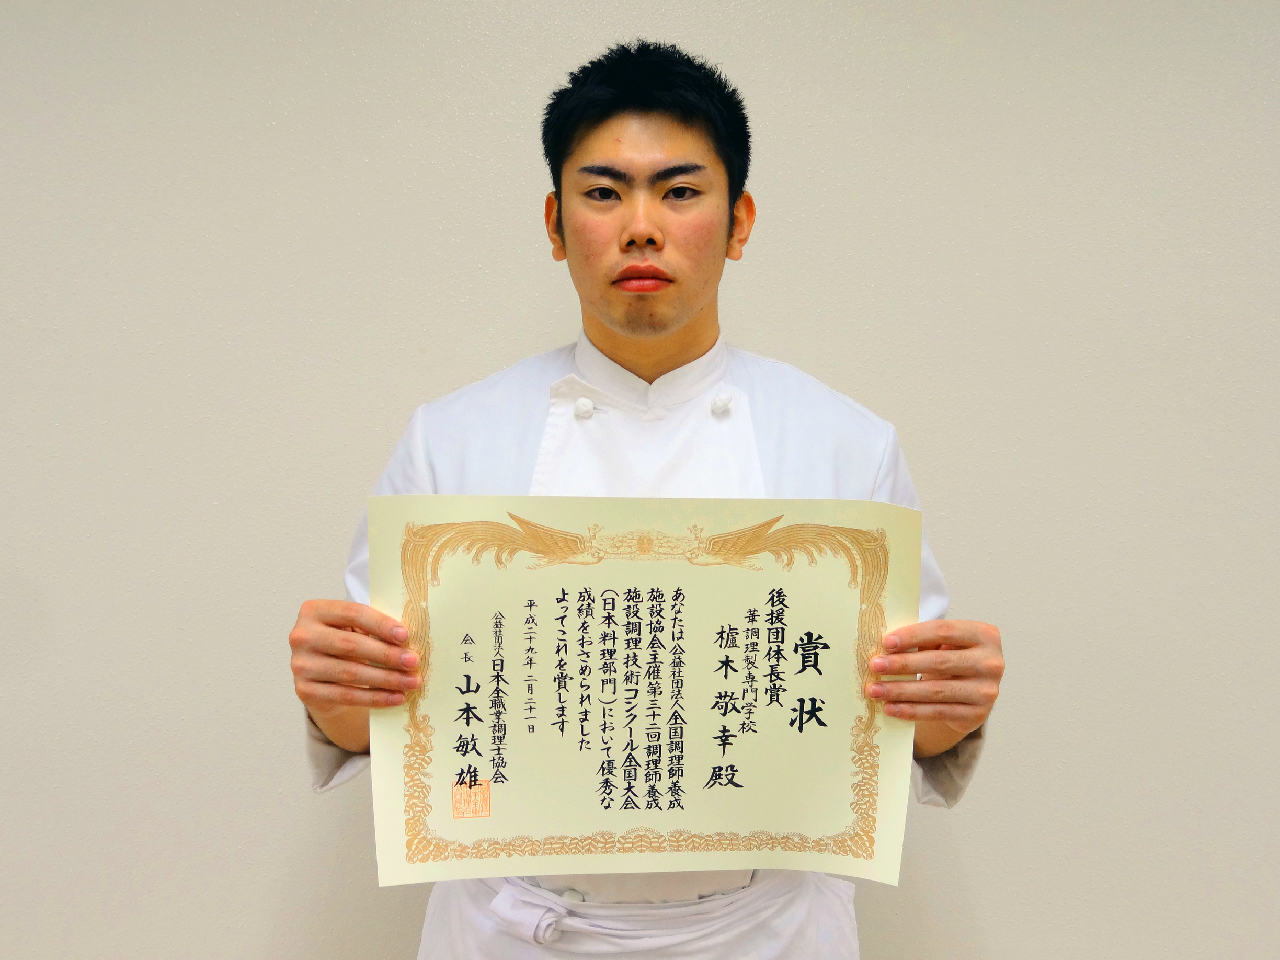 賞状
後援団体長賞
華調理製専門学校
櫨木敬幸殿
あなたは公益社団法人全国調理師養成
施設協会主催第三十二回調理師養成
施設調理技術コンクール全国大会
(日本料理部門)において優秀な
成績をおさめられました
よってこれを賞します
平成二十九年二月二十一日
公益社団法人日本全職業調理士協会
会長 山本敏雄